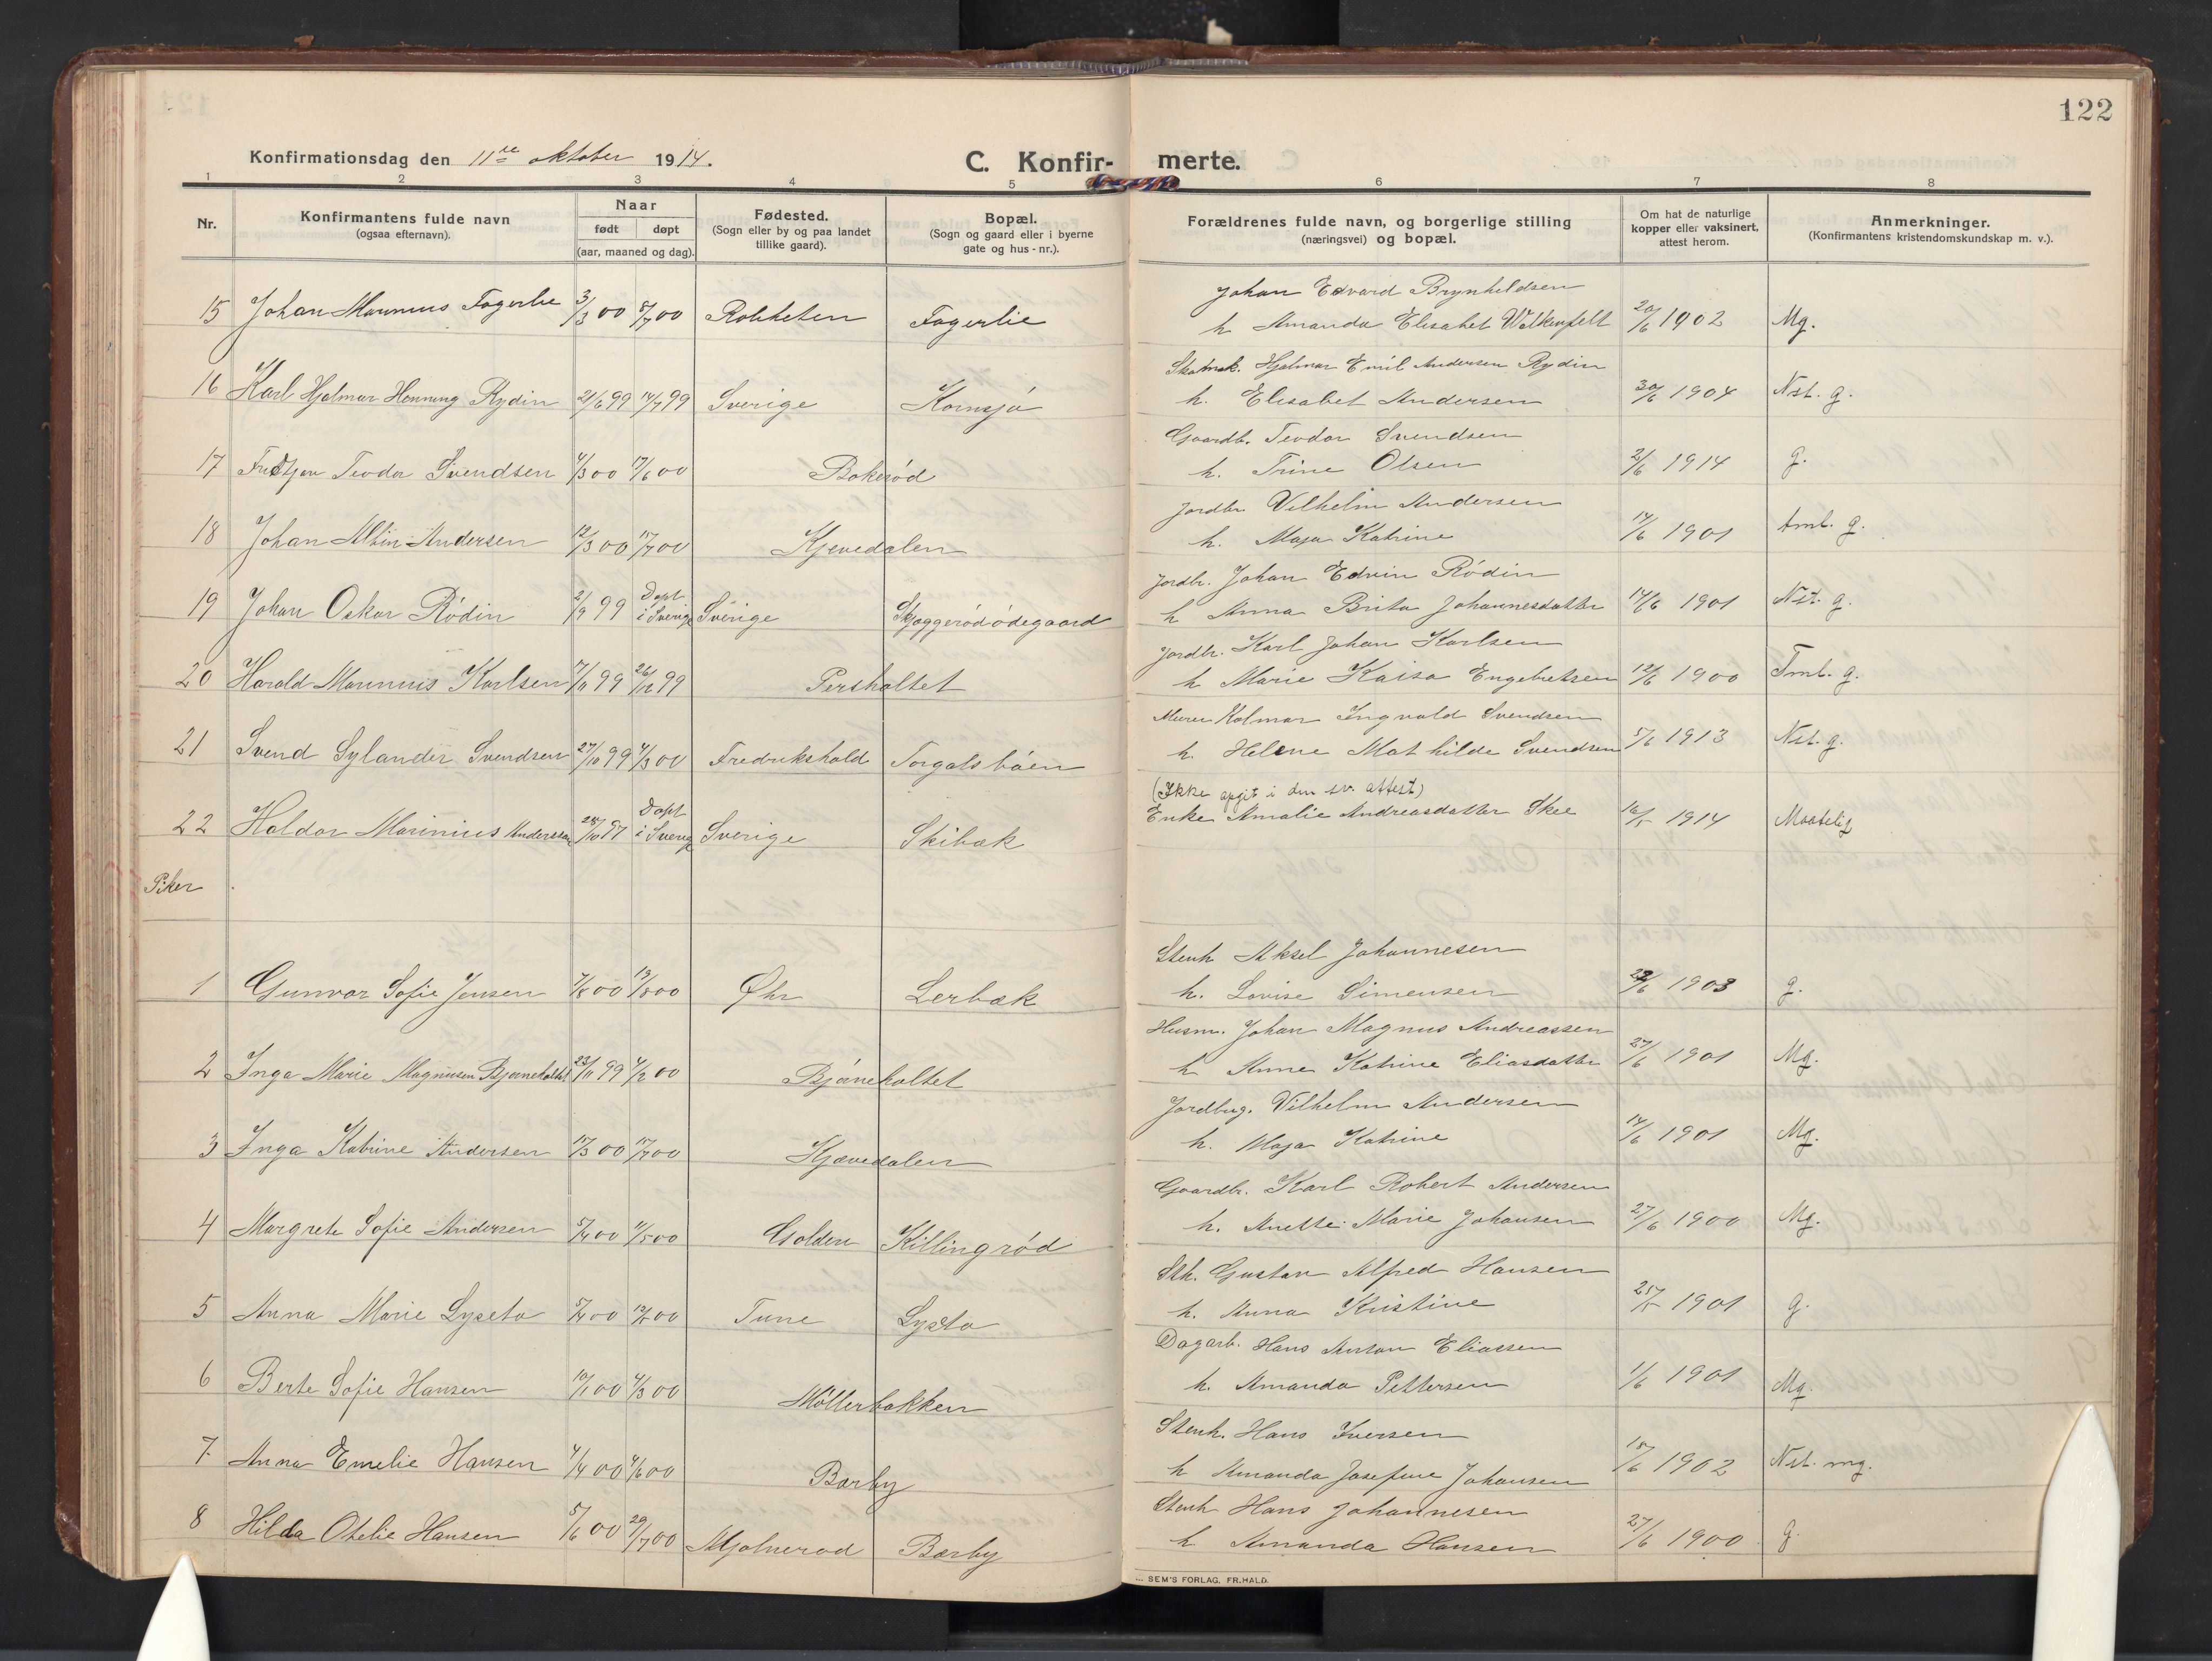 122
Konfirmationsdag den 11te oktober 1914.
C. Konfir- merte.
1 2 3 4 5 6 7 8
Nr.
Konfirmantens fulde navn
(ogsaa efternavn).
Naar
født døpt
(aar, maaned og dag).
Fødested.
(Sogn eller by og paa landet
tillike gaard).
Bopæl.
(Sogn og gaard eller i byerne
gate og hus-nr.).
Forældrenes fulde navn, og borgerlige stilling
(næringsvei) og bopæl.
Om hat de naturlige
kopper eller vaksinert,
attest herom.
Anmerkninger.
(Konfirmantens kristendomskundskap m. v.).
Johan Edvard Brynhildsen
15 Johan Marinius Fagerlie 3/3 00 8/7 00 Rokketen Fagerlie h Amanda Elisabet 20/6 1902 Mg.
Skomak. Hjalmar Emil Andersen Rydin
16 Karl Hjalmar Henning Rydin 21/6 99 14/7 99 Sverige Kornsjø h. Elisabet Andersen 30/6 1904 Nst. g.
Gaardbr. Teodor Svendsen
17 Teodor Svendsen 4/3 00 17/6 00 Bokerød h. Trine Olsen 2/6 1914 g.
Jordbr. Vilhelm Andersen
18 Johan Albin Andersen 12/3 00 15/7 00 Kjevedalen h. Maja Katrine 14/6 1901 tml. g.
Jordbr. Johan Edvin Rødin
19 Johan Oskar Rødin 2/9 99 Døpt i Sverige Sverige Skjæggerødødegaard h Anna Brita Johannesdatter 14/6 1901 Nst. g.
Jordbr. Karl Johan Karlsen
20 Harald Marinius Karlsen 7/11 99 26/12 99 Persholtet h Marie Kaisa Engebretsen 12/6 1900 Tml. g.
Murer Kolmar Ingvald Svendsen
21 Svend Sylander Svendsen 27/10 99 4/3 00 Fredrikshald Torgalsbøen h. Helene Mathilde Svendsen 5/6 1913 Nst. g.
(Ikke opgit i den sv. attest)
22 Haldor Marinius Anderssen 28/10 97 Døpt i Sverige Sverige Skibæk Enke Amalie Andreasdatter Skee 16/5 1914 Maatelig
Piker
Stenh Aksel Johannesen
1 Gunvor Sofie Jensen 7/8 00 19/8 00 Øhr Lerbæk h. Lovise Simensen 22/6 1903 g.
Husm. Johan Magnus Andreassen
2 Inga Marie Magnusen Bjørneholtet 23/11 99 4/2 00 Bjørneholtet h Anne Katrine Eliasdatter 27/6 1901 Mg.
Jordbrug. Vilhelm Andersen
3 Inga Katrine Andersen 12/3 00 15/7 00 Kjævedalen h. Maja Katrine 14/6 1901 Mg.
Gaardbr. Karl Robert Andersen
4 Margrete Sofie Andersen 5/4 00 11/5 00 Golden Killingrød h. Anette Marie Johansen 27/6 1900 Mg.
Sth. Gustav Alfred Hansen
5 Anna Marie Lyseto 5/4 00 12/8 00 Tune Lysto h. Anna Kristine 25/5 1901 g.
Dagarb. Hans Anton Eliassen
6 Berte Sofie Hansen 10/1 00 4/3 00 Møllerbakken h. Amanda Pettersen 1/6 1901 Mg.
Stenh. Hans Iversen
7. Anna Emelie Hansen 4/4 00 4/6 00 Barby h Amanda Josefine Johansen 18/6 1902 Nst. mg.
Stenh Hans Johannesen
8 Hilda Otelie Hansen 5/6 00 29/7 00 Mjølnerød Barby h Amanda Hansen 27/6 1900 g.
SEM'S FORLAG, FR.HALD.